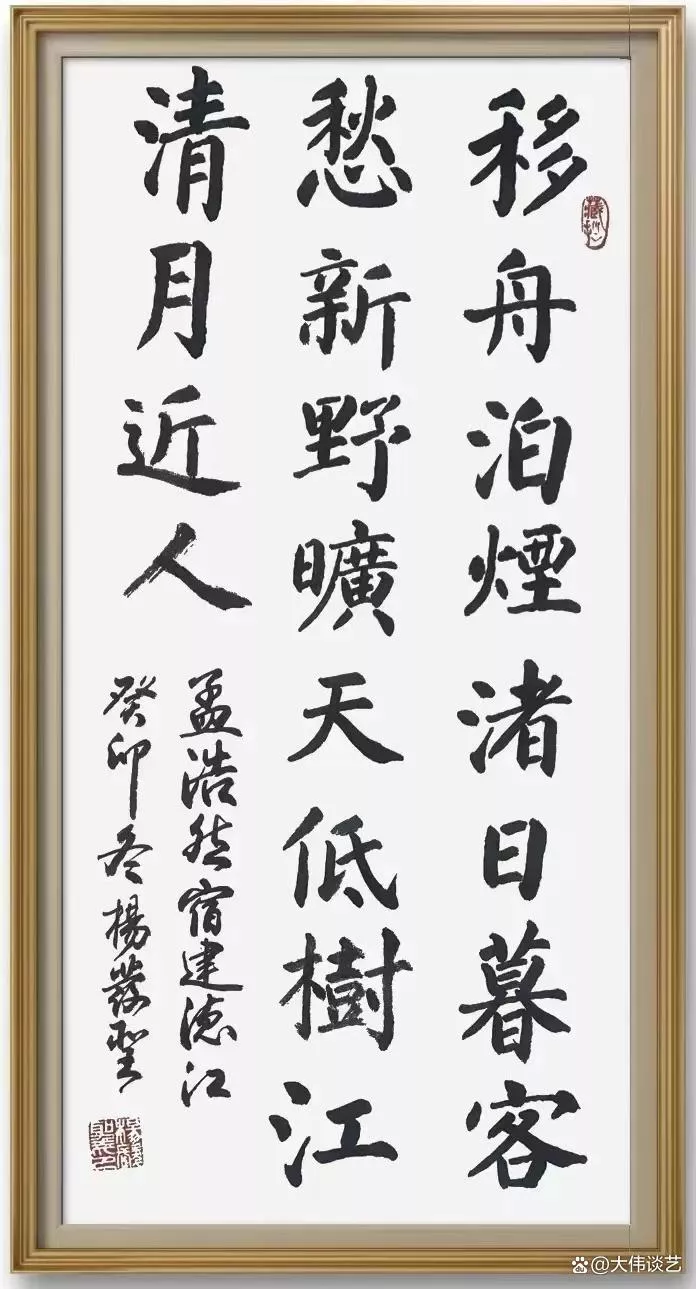 移舟泊煙渚日暮客
愁新野曠天低樹江
清月近人
孟浩然宿建德江
癸卯冬楊發聖
@大伟谈艺